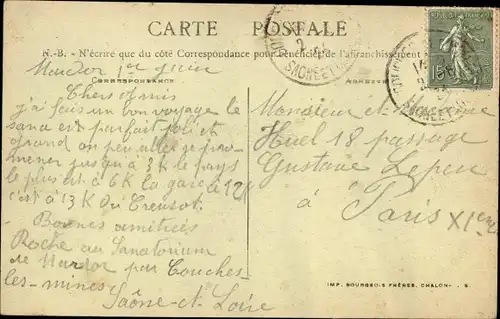 CARTE POSTALE
N.-B. - N'écrire que du côté Correspondance pour bénéficier de l'affranchissement
CORRESPONDANCE
Mardor 1er juin
Chers amis
j'ai fais un bon voyage le
sana est parfait joli et
grand on peu aller se pro-
mener jusqu'à 3K le pays
le plus près à 6K la gare à 12K
c'est à 13K du Creusot.
Bonnes amitiées
Roche au Sanatorium
de Mardor par Couches-
les-mines
Saône-et-Loire
Monsieur et
Huel 18 passage
Gustave Lepeu
à Paris
XIe
RÉPUBLIQUE FRANÇAISE
15
SAONE ET L
SAONE ET
IMP. BOURGEOIS FRÈRES, CHALON-S-S.